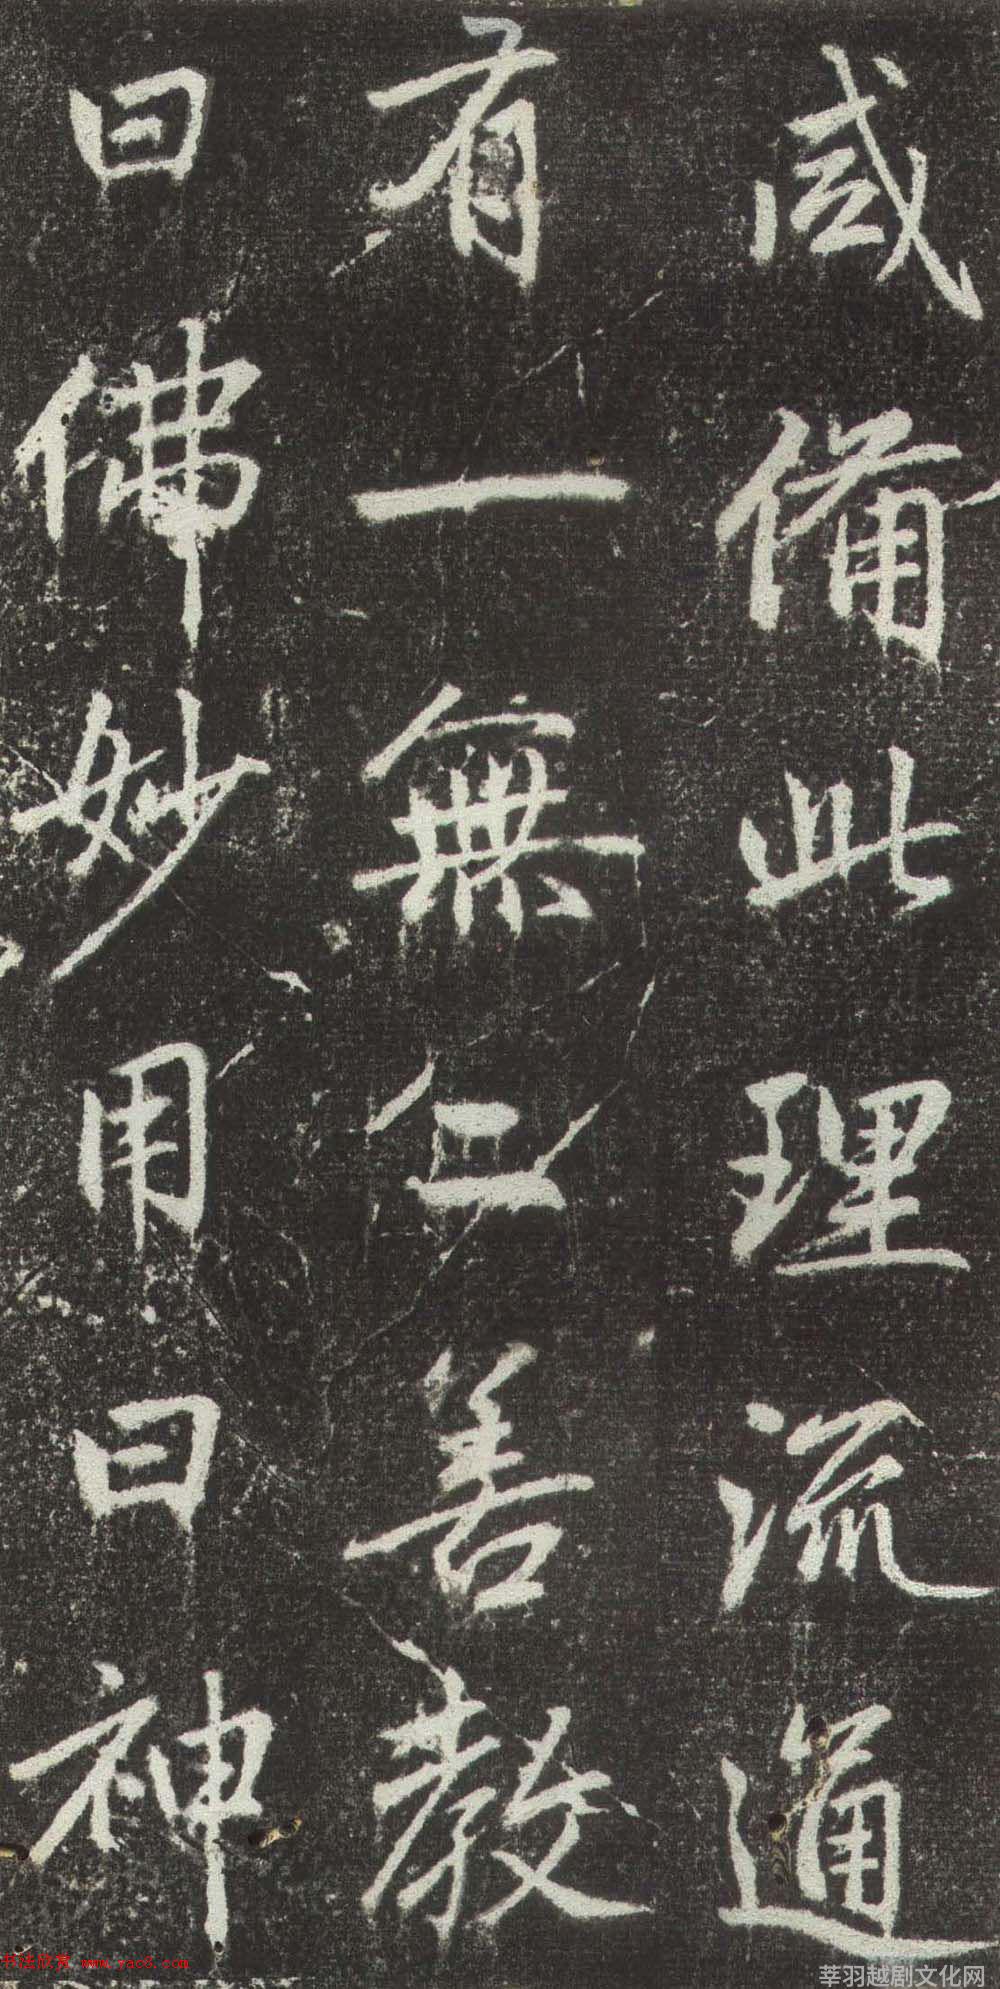 咸備此理流通
有一無二善教
曰佛妙用曰神
书法欣赏 www.yac8.com
莘羽越剧文化网